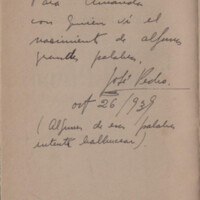 Para Amanda
con quien vi el
nacimiento de algunas
grandes palabras.
José Pedro.
oct 26/939
(Algunas de esas palabras
intenta balbucear)